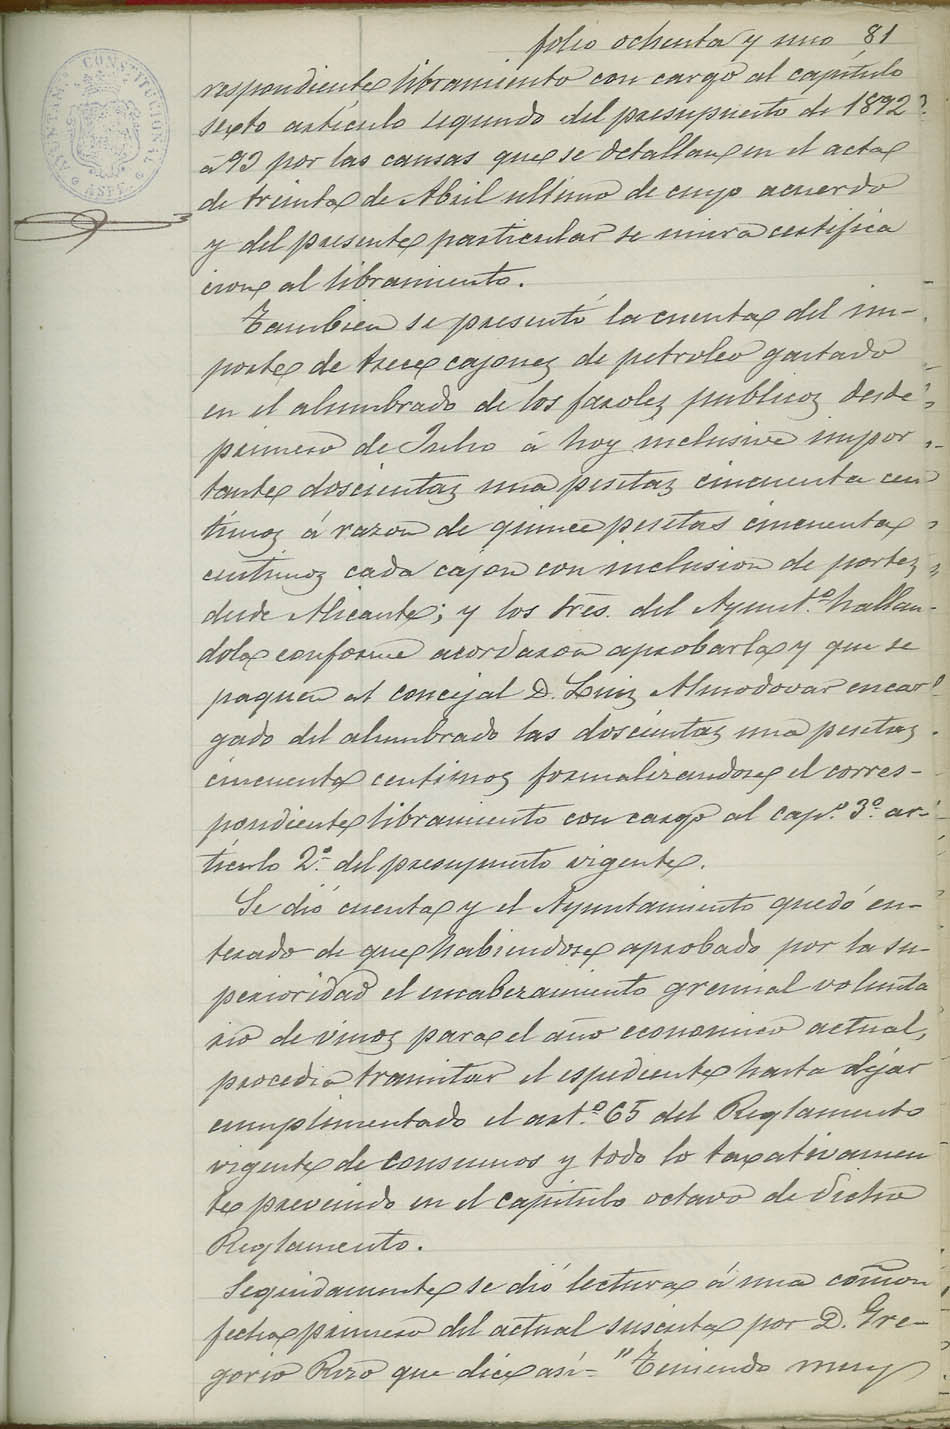 folio ochenta y uno 81
AYUNTAM. CONSTITUCIONAL
ASPE.
respondiente libramiento con cargo al capítulo
sexto artículo segundo del presupuesto de 1892
á 93 por las causas que se detallan en el acta
de treinta de Abril ultimo de cuyo acuerdo
y del presente particular se unira certifica
cion al libramiento.
Tambien se presentó la cuenta del im-
porte de trece cajones de petroleo gastado
en el alumbrado de los faroles publicos desde
primero de Julio á hoy inclusive impor
tante doscientas una pesetas cincuenta cen
timos á razon de quince pesetas cincuenta
centimos cada cajon con inclusion de portes
desde Alicante; y los Sres. del Ayunt.º hallan-
dola conforme acordaron aprobarla y que se
paguen al concejal D. Luis Almodovar encar
gado del alumbrado las doscientas una pesetas
cincuenta centimos formalizandose el corres-
pondiente libramiento con cargo al cap.º 3.º ar-
tículo 2.º del presupuesto vigente.
Se dió cuenta y el Ayuntamiento quedó en-
terado de que habiendose aprobado por la su-
perioridad el encabezamiento gremial volunta
rio de vinos para el año economico actual,
procedia tramitar el espediente hasta dejar
cumplimentado el art.º 65 del Reglamento
vigente de consumos y todo lo taxativamen
te prevenido en el capítulo octavo de dicho
Reglamento.
Seguidamente se dió lectura á una comon
fecha primero del actual suscrita por D. Gre-
gorio Rizo que dice así= "Teniendo muy